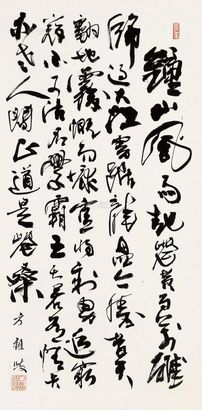 鍾山風雨起蒼黄百萬雄
師過大江虎踞龍盤今勝昔天
翻地覆慨而慷宜將剩勇追窮
寇不可沽名學霸王天若有情天
亦老人間正道是滄桑
方祖岐